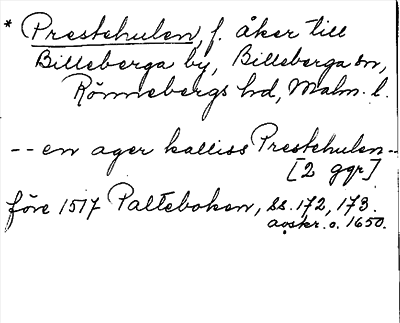 * Prestehulen, f. åker till
Billeberga by, Billeberga sn,
Rönnebergs hd, Malm. l.
-- en ager kalliss Prestehulen --
[2 ggr]
före 1517 Palteboken, ss. 172, 173.
avskr. o. 1650.